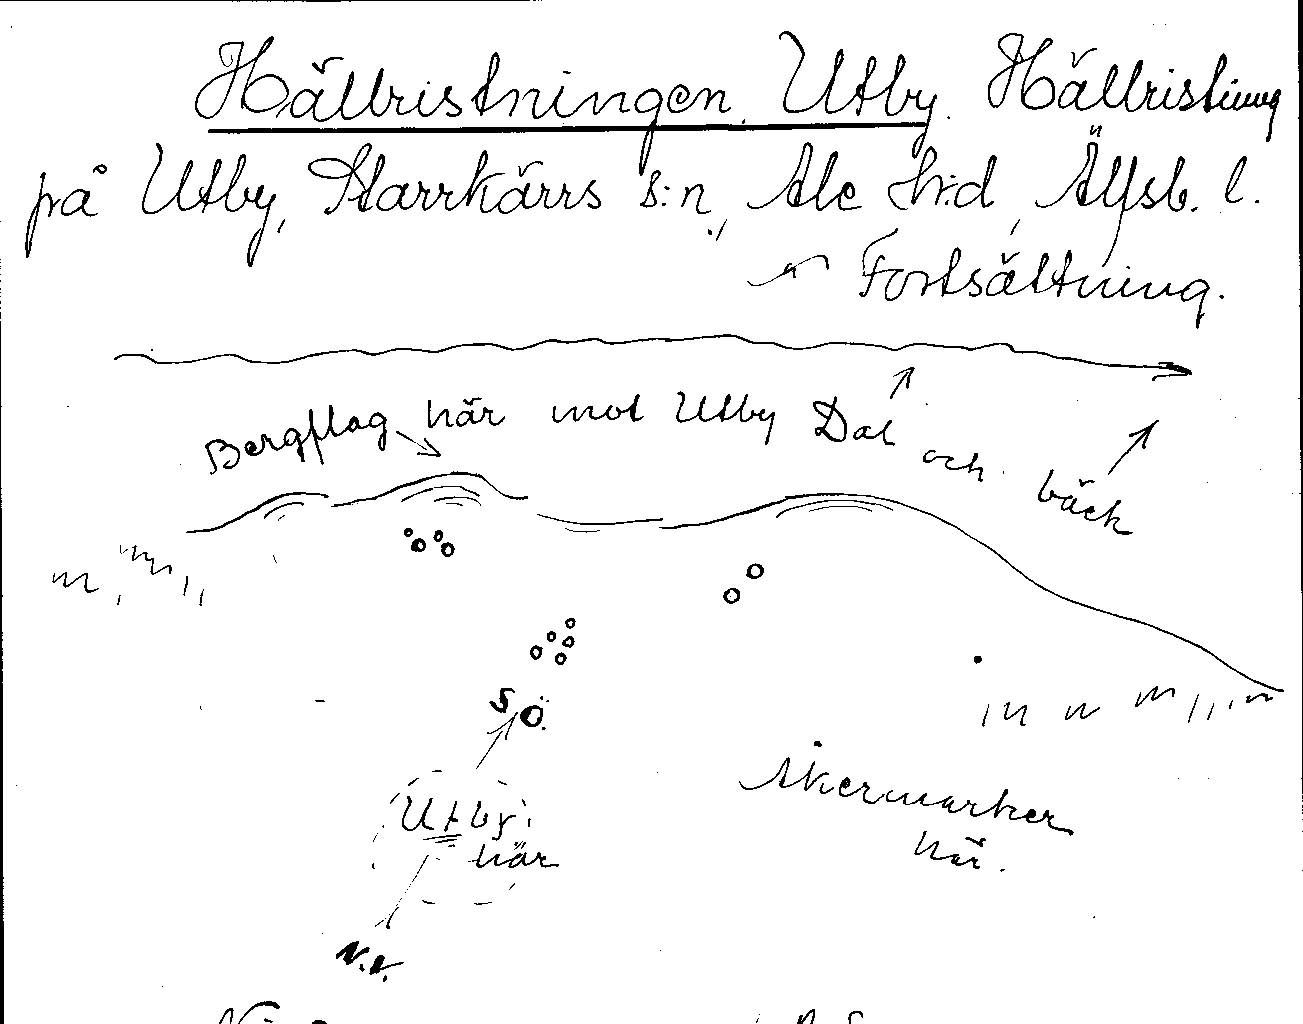 Hällristningen. Utby. Hällristning
på Utby, Starrkärrs s:n, Ale h:d, Älfsb. l.
Fortsättning.
Bergflag här mot Utby Dal och bäck
S Ö.
Utby
här
Åkermarker
här.
N.V.